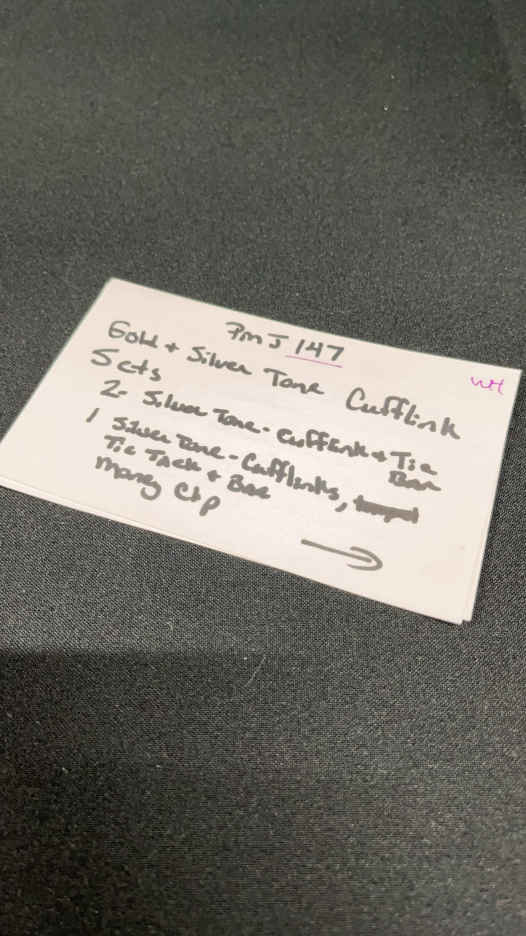 PMJ 147
WH
Gold + Silver Tone Cufflink
Sets
2- Silver Tone - Cufflink + Tie
Bar
1 Silver Tone - Cufflinks,
Tie Tack + Bar
Money Clip